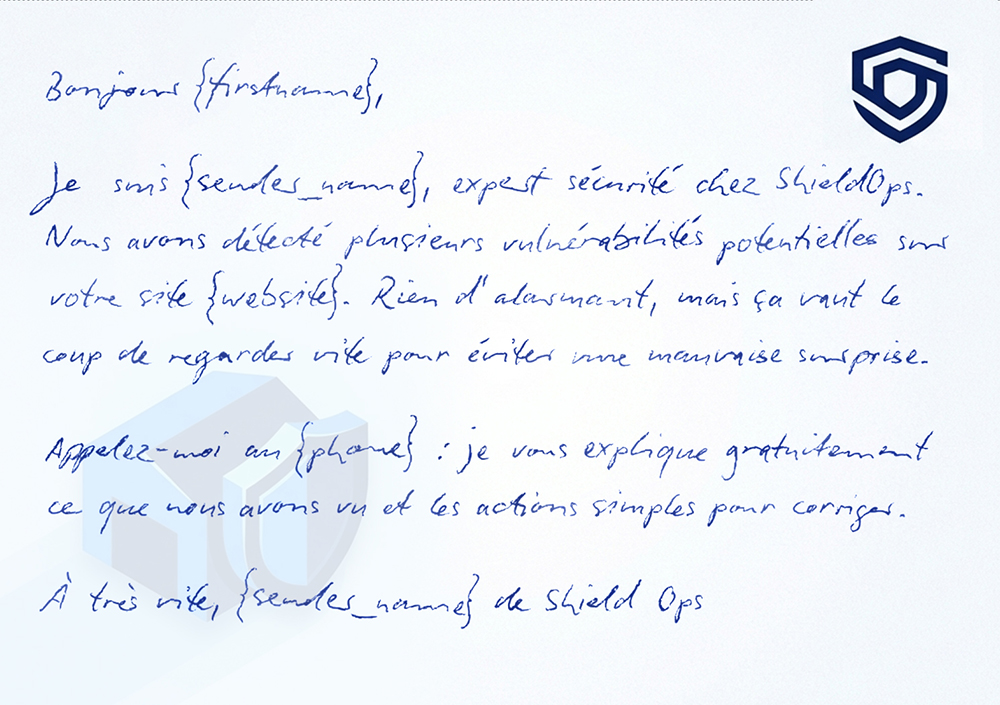 Bonjour {firstname},
Je suis {sender_name}, expert sécurité chez ShieldOps.
Nous avons détecté plusieurs vulnérabilités potentielles sur
votre site {website}. Rien d'alarmant, mais ça vaut le
coup de regarder vite pour éviter une mauvaise surprise.
Appelez-moi au {phone} : je vous explique gratuitement
ce que nous avons vu et les actions simples pour corriger.
À très vite, {sender_name} de Shield Ops